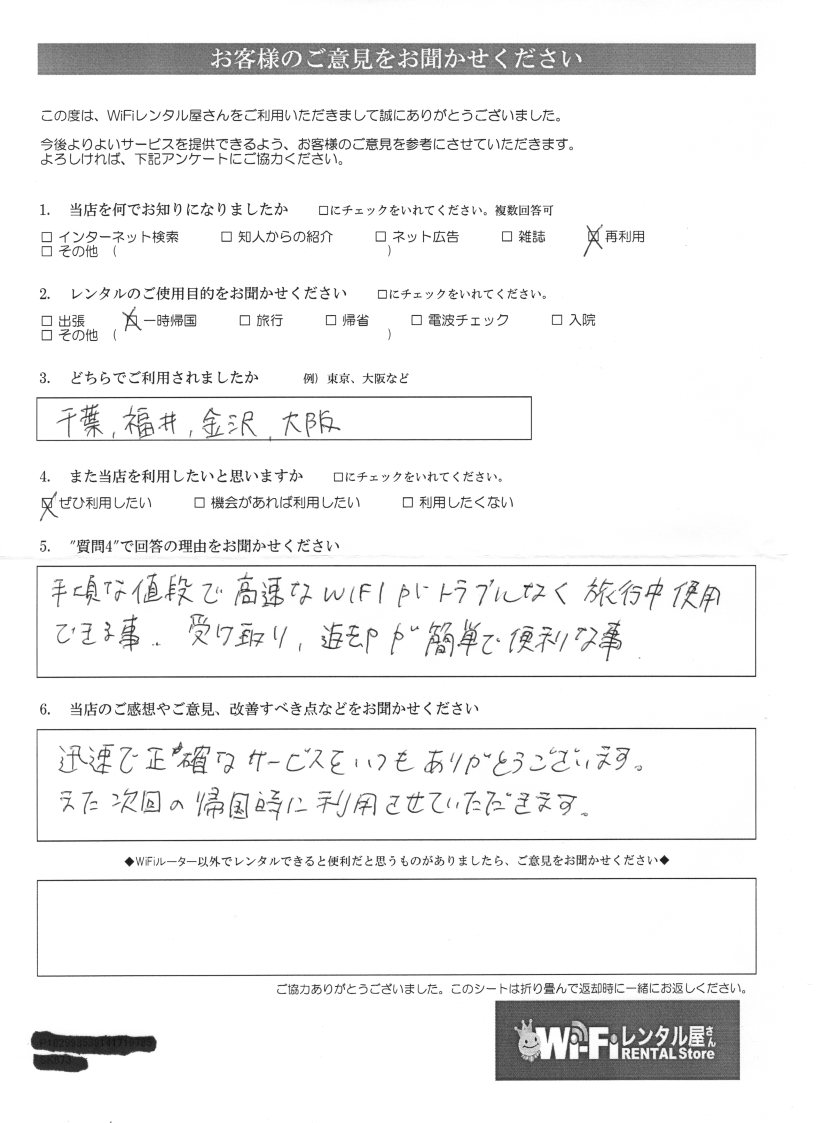 お客様のご意見をお聞かせください
この度は、WiFiレンタル屋さんをご利用いただきまして誠にありがとうございました。
今後よりよいサービスを提供できるよう、お客様のご意見を参考にさせていただきます。
よろしければ、下記アンケートにご協力ください。
1. 当店を何でお知りになりましたか □にチェックをいれてください。複数回答可
□ インターネット検索 □ 知人からの紹介 □ ネット広告 □ 雑誌 ☒ 再利用
□ その他 ( )
2. レンタルのご使用目的をお聞かせください □にチェックをいれてください。
□ 出張 ☒ 一時帰国 □ 旅行 □ 帰省 □ 電波チェック □ 入院
□ その他 ( )
3. どちらでご利用されましたか 例) 東京、大阪など
千葉, 福井, 金沢, 大阪
4. また当店を利用したいと思いますか □にチェックをいれてください。
☒ ぜひ利用したい □ 機会があれば利用したい □ 利用したくない
5. "質問4"で回答の理由をお聞かせください
手頃な値段で高速なWIFIがトラブルなく旅行中使用
できる事。受け取り, 返却が簡単で便利な事
6. 当店のご感想やご意見、改善すべき点などをお聞かせください
迅速で正確なサービスをいつもありがとうございます。
また次回の帰国時に利用させていただきます。
◆WiFiルーター以外でレンタルできると便利だと思うものがありましたら、ご意見をお聞かせください◆
ご協力ありがとうございました。このシートは折り畳んで返却時に一緒にお返しください。
Wi-Fiレンタル屋さん
RENTAL Store